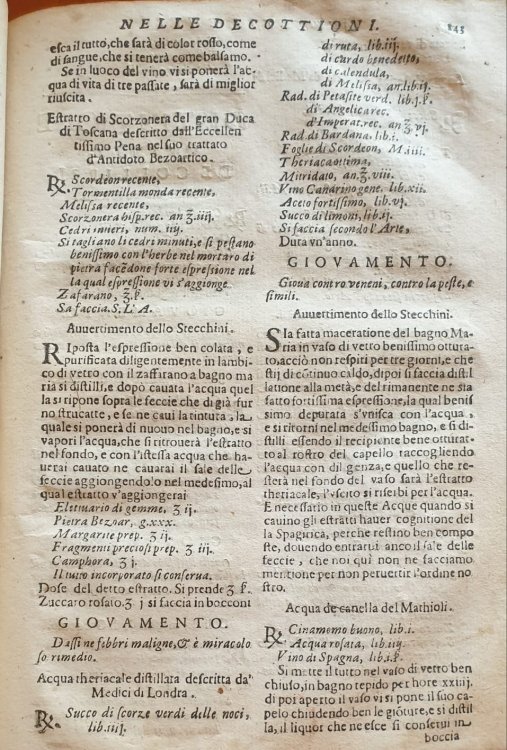 NELLE DECOTTIONI. 845
esca il tutto, che sarà di color rosso, come
di sangue, che si tenerà come balsamo.
Se in luoco del vino vi si ponerà l'ac
qua di vita di tre passate, sarà di miglior
riuscita.
Estratto di Scorzonera del gran Duca
di Toscana descritto dall'Eccellen
tissimo Pena nel suo trattato
d'Antidoto Bezoartico.
℞. Scordeon recente,
Tormentilla monda recente,
Melissa recente,
Scorzonera hisp. rec. an ʒ. iiij.
Cedri intieri, num. iiij.
Si tagliano li cedri minuti, e si pestano
benissimo con l'herbe nel mortaro di
pietra facēdone forte espressione nel
la qual espressione vi s'aggionge
Zafarano, ʒ. ß.
Sa faccia. S. L' A.
Auuertimento dello Stecchini.
RIposta l'espressione ben colata, e
purificata diligentemente in lambi
co di vetro con il zaffrano a bagno ma
ria si distilli, e dopò cauata l'acqua quel
la si ripone sopra le feccie che di già fur
no strucatte, e se ne caui la tintura, la
quale si ponerà di nuouo nel bagno, e si
vapori l'acqua, che si ritrouerà l'estratto
nel fondo, e con l'istessa acqua che ha-
uerai cauato ne cauarai il sale delle
feccie aggiongendolo nel medesimo, al
qual estratto v'aggiongerai
Elettuario di gemme, ʒ ij.
Pietra Bezoar, g. xxx.
Margarite prep. ʒ ij.
Fragmenti preciosi prep. ʒ iij.
Camphora, ʒ j.
Il tutto incorporato si conserua.
Dose del detto estratto. Si prende ʒ ß.
Zuccaro rosato. ʒ j si faccia in bocconi
GIOVAMENTO.
Dassi ne febbri maligne, & è miracolo
so rimedio.
Acqua theriacale distillata descritta da'
Medici di Londra.
℞. Succo di scorze verdi delle noci,
lib. iiij.
di ruta, lib. iij.
di cardo benedetto,
di calendula,
di Melissa, an. lib. ij.
Rad. di Petasite verd. lib. j. ß.
d'Angelica rec.
d'Imperat. rec. an ʒ. vj.
Rad. di Bardana. lib. i.
Foglie di Scordeon, M. iiii.
Theriaca ottima,
Mitridaio, an ʒ. viii.
Vino Canarino gene. lib. xii.
Aceto fortissimo, lib. vj.
Succo di limoni, lib. ij.
Si faccia secondo l'Arte,
Dura vn'anno.
GIOVAMENTO.
Gioua contro veneni, contro la peste, e
simili.
Auuertimento dello Stecchini.
SIa fatta maceratione del bagno Ma
ria in vaso di vetro benissimo ottura-
to, acciò non respiri per tre giorni, e che
stij di cōtinuo caldo, dipoi si faccia distil
latione alla metà, e del rimanente ne sia
fatto fortissima espressione, la qual benis
simo depurata s'vnisca con l'acqua,
e si ritorni nel medessimo bagno, e si di-
stilli essendo il recipiente bene otturat-
to al rostro del capello raccogliendo
l'acqua con diligenza, e quello che re-
sterà nel fondo del vaso sarà l'estratto
theriacale, l'vscito si riserbi per l'acqua.
E necessatio in queste Acque quando si
cauino gli estratti hauer cognitione del
la Spagirica, perche restino ben compo
ste, douendo entrarui anco il sale delle
feccie, che noi quì non ne facciamo
mentione per non peruertir l'ordine no
stro.
Acqua de canella del Mathioli.
℞. Cinamomo buono, lib. i.
Acqua rosata, lib. iiij.
Vino di Spagna, lib. i. ß.
Si mette il tutto nel vaso di vetro ben
chiuso, in bagno tepido per hore xxiiij.
di poi aperto il vaso vi si pone il suo ca-
pelo chiudendo ben le gionture, e si distil
la, il liquor che ne esce si conserui in
boccia